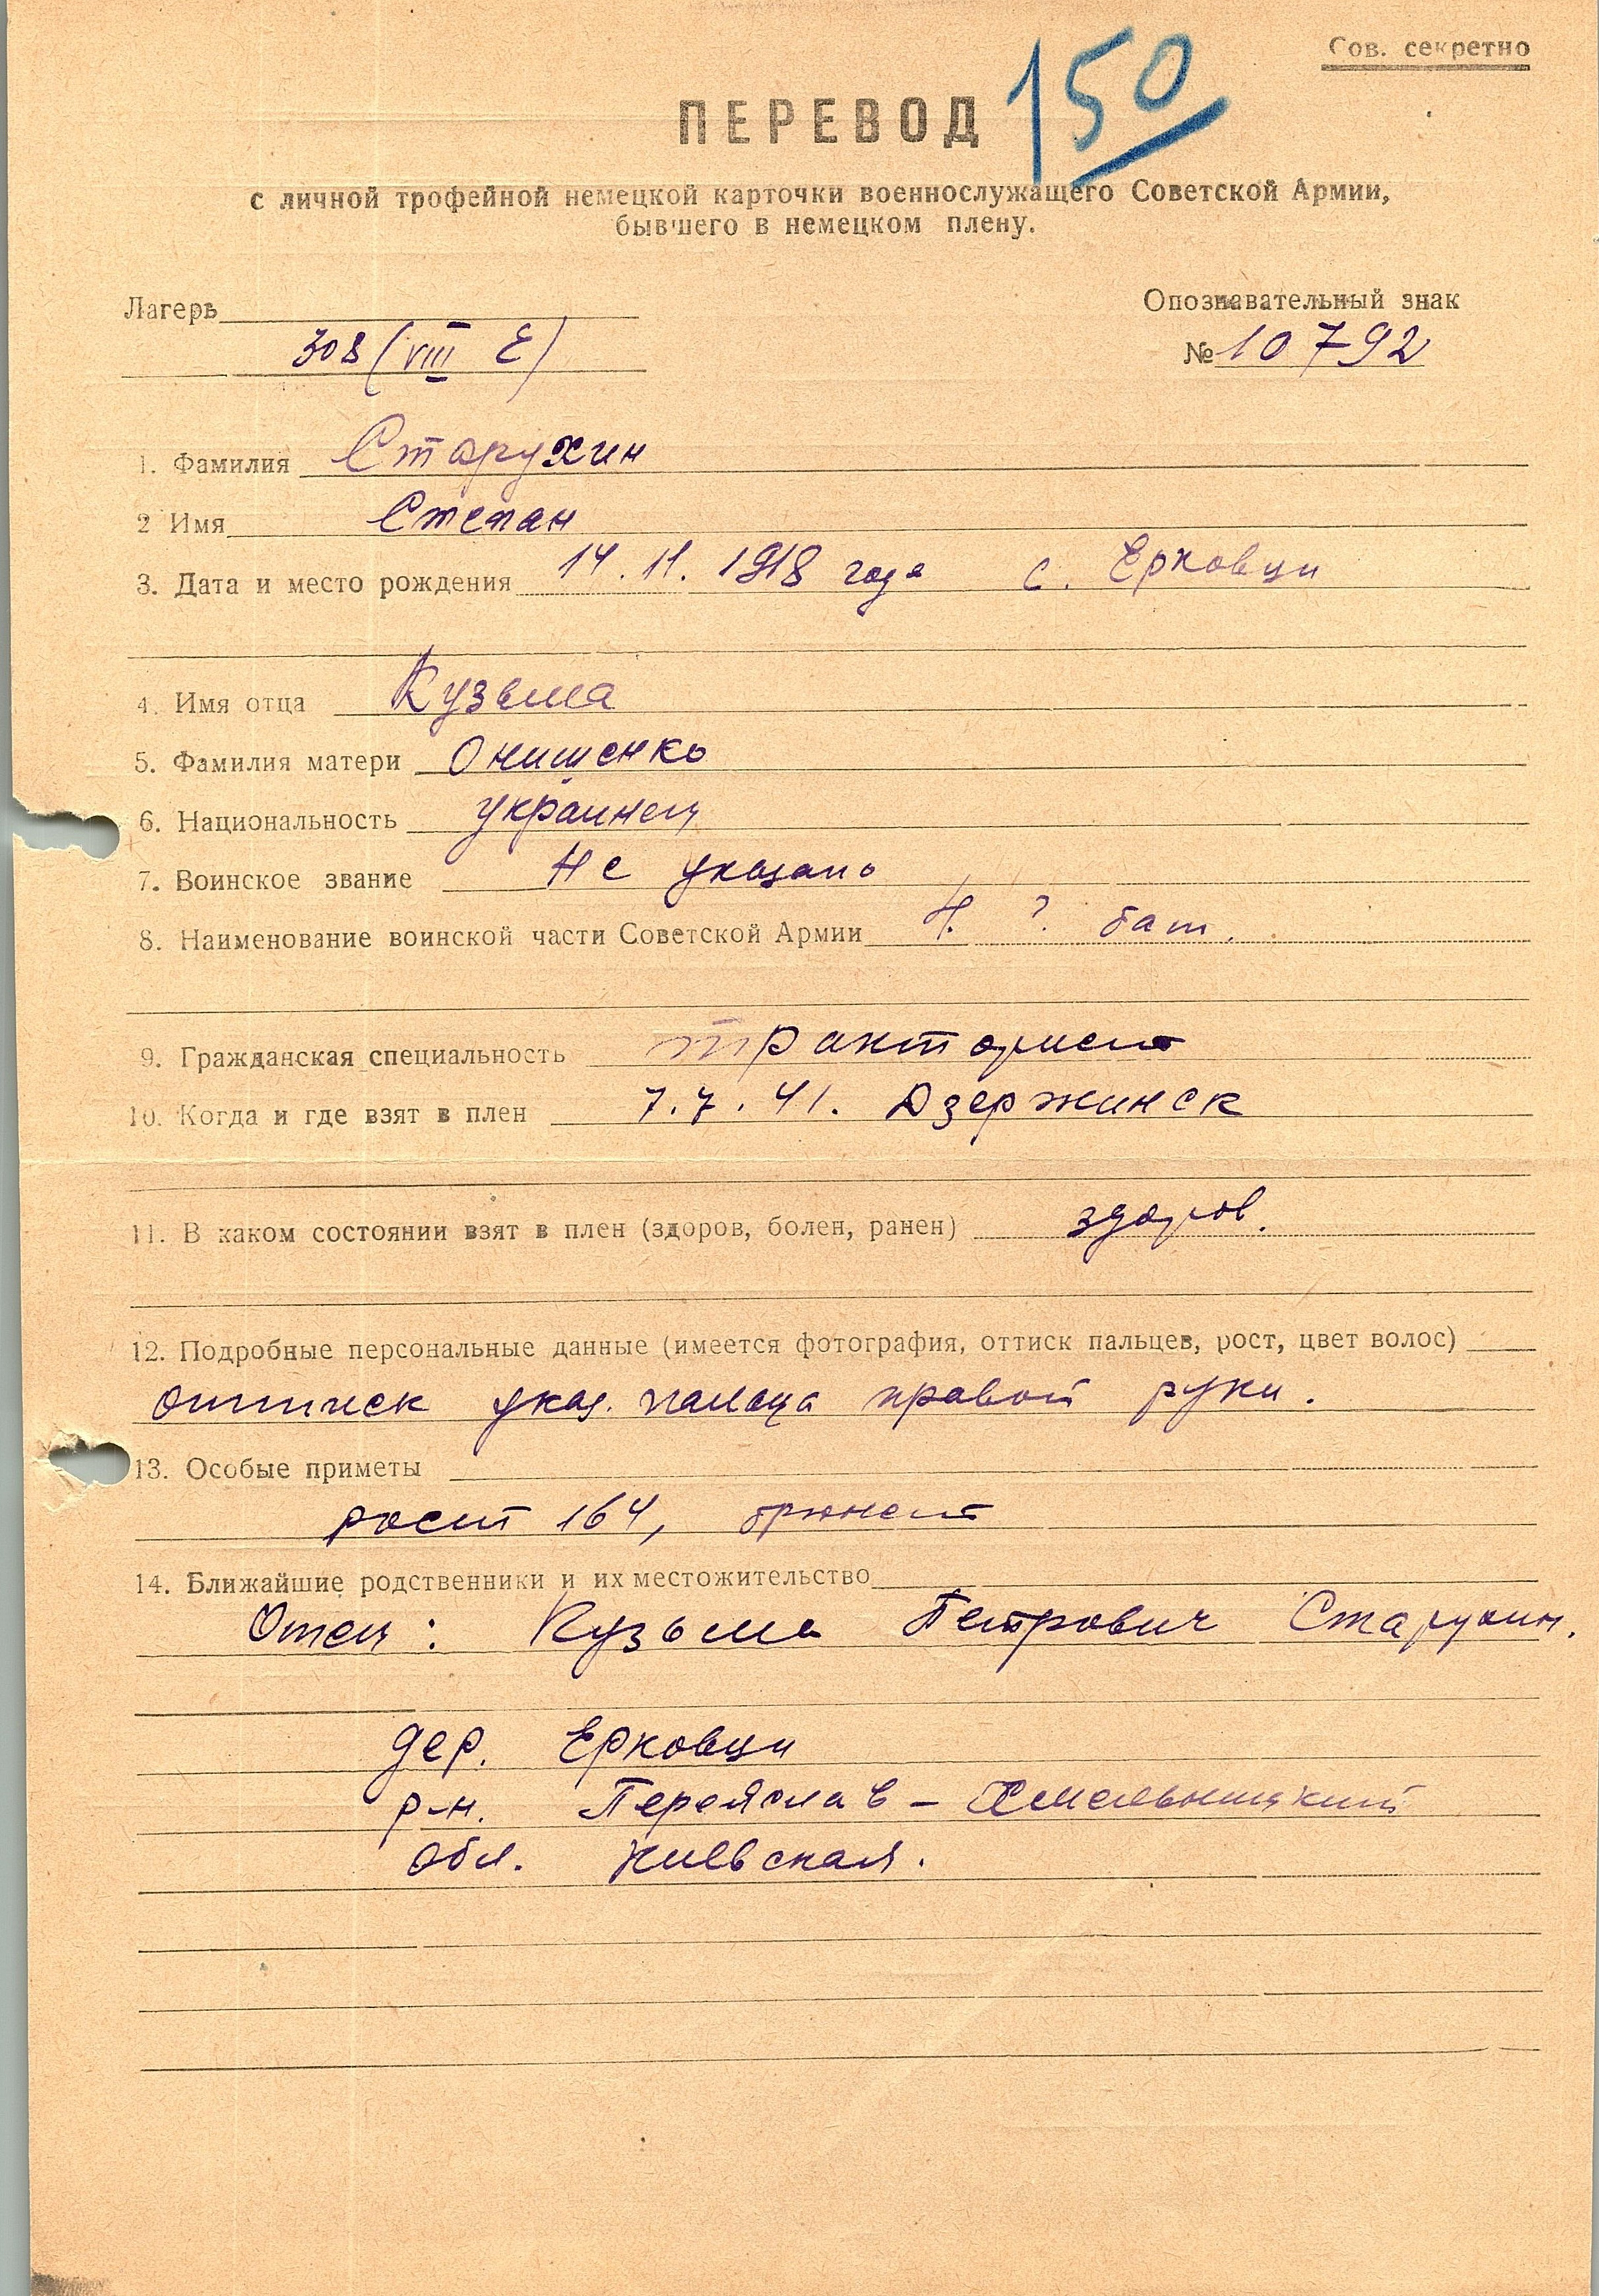 Сов. секретно
ПЕРЕВОД 150
с личной трофейной немецкой карточки военнослужащего Советской Армии,
бывшего в немецком плену.
Лагерь
Опознавательный знак
308 (VIII E)
№ 10792
1. Фамилия Старухин
2 Имя Степан
3. Дата и место рождения 14.11.1918 года с. Ерковци
4. Имя отца Кузьма
5. Фамилия матери Онишенко
6. Национальность украинец
7. Воинское звание Не указано
8. Наименование воинской части Советской Армии ? бат.
9. Гражданская специальность тракторист
10. Когда и где взят в плен 7.7.41. Дзержинск
11. В каком состоянии взят в плен (здоров, болен, ранен) здоров.
12. Подробные персональные данные (имеется фотография, оттиск пальцев, рост, цвет волос)
оттиск указ. пальца правой руки.
13. Особые приметы
рост 164, брюнет
14. Ближайшие родственники и их местожительство
Отец: Кузьма Петрович Старухин.
дер. Ерковци
р-н. Переяслав-Хмельницкий
обл. Киевская.